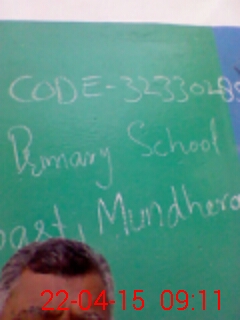 CODE-3233028
Primary School
Mundhera
22-04-15 09:11